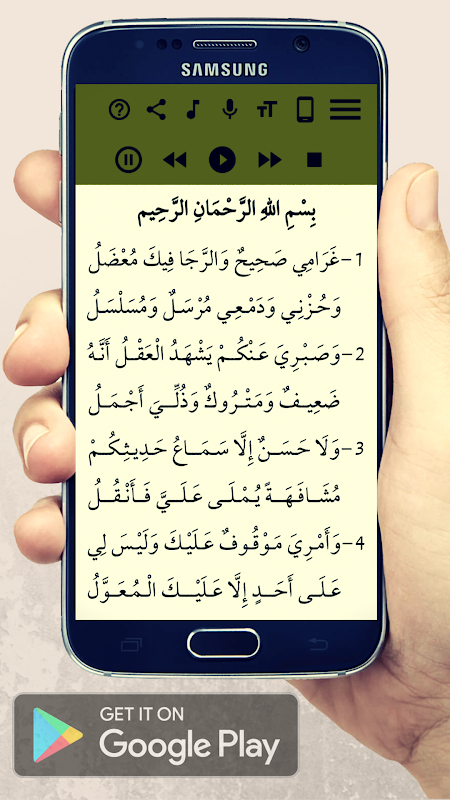 SAMSUNG
بِسْمِ اللهِ الرَّحْمَانِ الرَّحِيم
1-غَرَامِي صَحِيحٌ وَالرَّجَا فِيكَ مُعْضَلُ
وَحُزْنِي وَدَمْعِي مُرْسَلٌ وَمُسَلْسَلُ
2-وَصَبْرِيَ عَنْكُمْ يَشْهَدُ الْعَقْلُ أَنَّهُ
ضَعِيفٌ وَمَتْرُوكٌ وَذُلِّيَ أَجْمَلُ
3-وَلَا حَسَنٌ إِلَّا سَمَاعُ حَدِيثِكُمْ
مُشَافَهَةً يُمْلَى عَلَيَّ فَأَنْقُلُ
4-وَأَمْرِيَ مَوْقُوفٌ عَلَيْكَ وَلَيْسَ لِي
عَلَى أَحَدٍ إِلَّا عَلَيْكَ الْمُعَوَّلُ
GET IT ON
Google Play